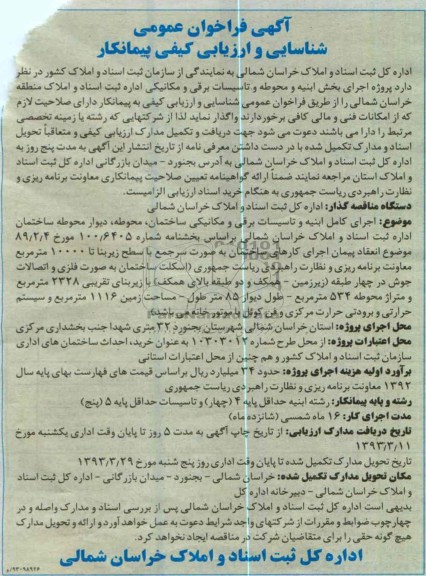 آگهی فراخوان عمومی
شناسایی و ارزیابی کیفی پیمانکار
اداره کل ثبت اسناد و املاک خراسان شمالی به نمایندگی از سازمان ثبت اسناد و املاک کشور در نظر
دارد پروژه اجرای بخش ابنیه و محوطه و تاسیسات برقی و مکانیکی اداره ثبت اسناد و املاک منطقه
خراسان شمالی را از طریق فراخوان عمومی شناسایی و ارزیابی کیفی به پیمانکار دارای صلاحیت لازم
که از امکانات فنی و مالی کافی برخوردارند واگذار نماید لذا از شرکتهایی که رشته یا زمینه تخصصی
مرتبط را دارا می باشند دعوت می شود جهت دریافت و تکمیل مدارک ارزیابی کیفی و متعاقباً تحویل
اسناد و مدارک تکمیل شده با در دست داشتن معرفی نامه از تاریخ انتشار این آگهی به مدت پنج روز به
اداره کل ثبت اسناد و املاک خراسان شمالی به آدرس بجنورد - میدان بازرگانی اداره کل ثبت اسناد
و املاک استان مراجعه نمایند ضمناً ارائه گواهینامه تعیین صلاحیت پیمانکاری معاونت برنامه ریزی و
نظارت راهبردی ریاست جمهوری به هنگام خرید اسناد ارزیابی الزامیست.
دستگاه مناقصه گذار: اداره کل ثبت اسناد و املاک خراسان شمالی
موضوع: اجرای کامل ابنیه و تاسیسات برقی و مکانیکی ساختمان، محوطه، دیوار محوطه ساختمان
اداره ثبت اسناد و املاک خراسان شمالی براساس بخشنامه شماره ۱۰۰/۶۴۰۵ مورخ ۸۹/۲/۴
موضوع انعقاد پیمان اجرای کارهای ساختمان به صورت سرجمع با سطح زیربنا تا ۱۰۰۰۰ مترمربع
معاونت برنامه ریزی و نظارت راهبردی ریاست جمهوری (اسکلت ساختمان به صورت فلزی و اتصالات
جوش در چهار طبقه (زیرزمین - همکف و دو طبقه بالای همکف) با زیربنای تقریبی ۲۳۲۸ مترمربع
و متراژ محوطه ۵۳۴ مترمربع - طول دیوار ۸۵ متر طول - مساحت زمین ۱۱۱۶ مترمربع و سیستم
حرارتی و برودتی حرارت مرکزی و فن کوئل با موتور خانه می باشد)
محل اجرای پروژه: استان خراسان شمالی شهرستان بجنورد ۳۲ متری شهدا جنب بخشداری مرکزی
محل اعتبارات پروژه: از محل طرح شماره ۱۰۳۰۳۰۱۲ به عنوان خرید، احداث ساختمان های اداری
سازمان ثبت اسناد و املاک کشور و هم چنین از محل اعتبارات استانی
برآورد اولیه هزینه اجرای پروژه: حدود ۳۴ میلیارد ریال براساس قیمت های فهرست بهای پایه سال
۱۳۹۲ معاونت برنامه ریزی و نظارت راهبردی ریاست جمهوری
رشته و پایه پیمانکار: رشته ابنیه حداقل پایه ۴ (چهار) و تاسیسات حداقل پایه ۵ (پنج)
مدت اجرای کار: ۱۶ ماه شمسی (شانزده ماه)
تاریخ دریافت مدارک ارزیابی: از تاریخ چاپ آگهی به مدت ۵ روز تا پایان وقت اداری یکشنبه مورخ
۱۳۹۳/۳/۱۱
تاریخ تحویل مدارک تکمیل شده تا پایان وقت اداری روز پنج شنبه مورخ ۱۳۹۳/۳/۲۹
مکان تحویل مدارک تکمیل شده: خراسان شمالی - بجنورد - میدان بازرگانی - اداره کل ثبت اسناد
و املاک خراسان شمالی - دبیرخانه اداره کل
بدیهی است اداره کل ثبت اسناد و املاک خراسان شمالی پس از بررسی اسناد و مدارک واصله و در
چهارچوب ضوابط و مقررات از شرکتهای واجد شرایط دعوت به عمل خواهد آورد و ارائه و تحویل مدارک
هیچ گونه حقی را برای متقاضیان شرکت در مناقصه ایجاد نخواهد کرد.
اداره کل ثبت اسناد و املاک خراسان شمالی